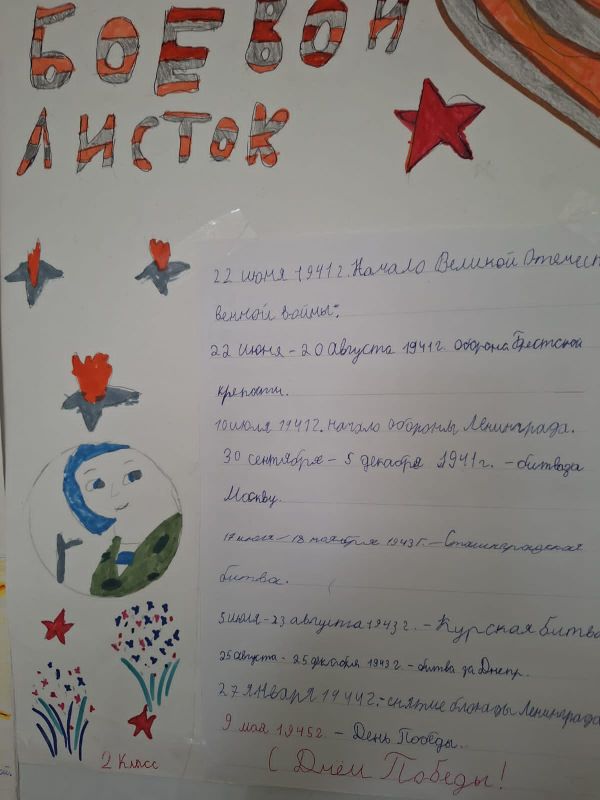 БОЕВОЙ
ЛИСТОК
22 июня 1941 г. Начало Великой Отечест
венной войны:
22 июня - 20 августа 1941г. оборона Брестской
крепости.
10 июля 1141г. начало обороны Ленинграда.
30 сентября - 5 декабря 1941г. - битва за
Москву.
17 июля - 18 ноября 1943г. - Сталинградская
битва.
5 июля - 23 августа 1943 г. - Курская битва
25 августа - 25 декабря 1943г. - битва за Днепр.
27 января 1944г. - снятие блокады Ленинграда
9 мая 1945г. - День Победы.
2 класс
С Днём Победы!